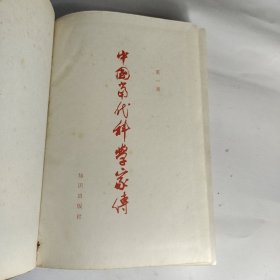 第一集
中国当代科学家传
知识出版社